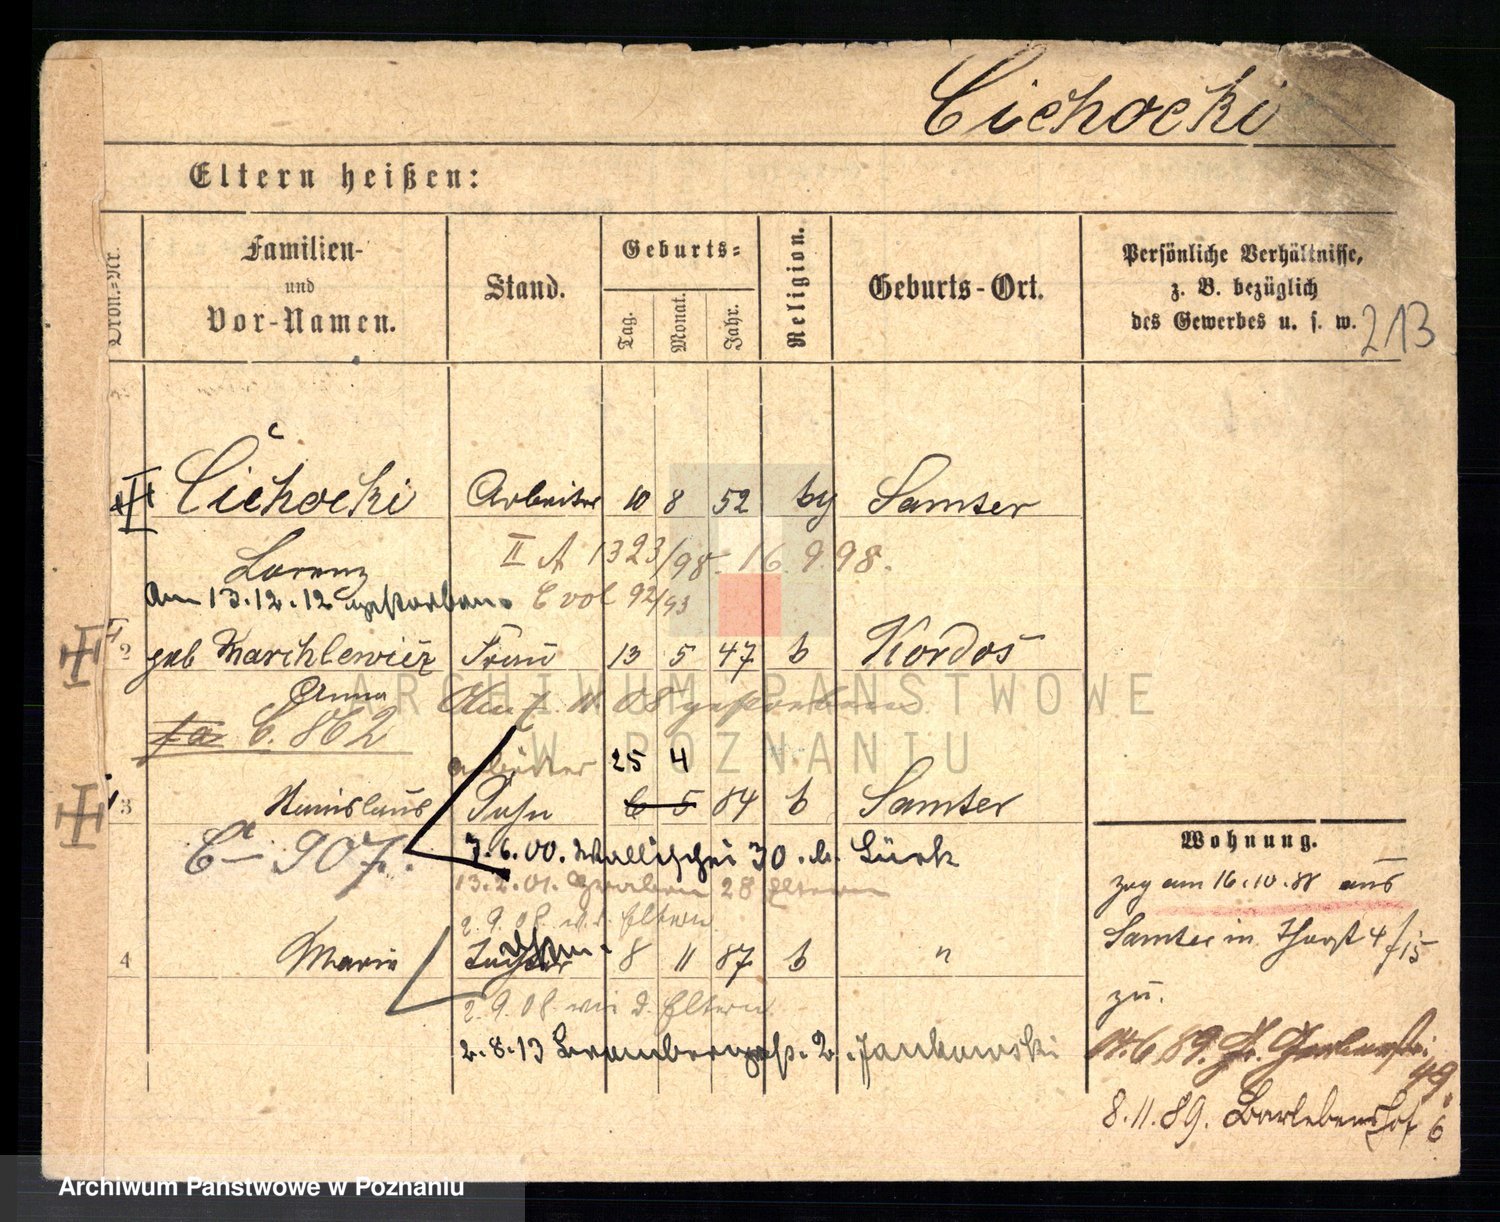 Cichocki
Eltern heißen:
Ordn.=Nr.
Familien-
und
Vor-Namen.
Stand.
Geburts=
Tag.
Monat.
Jahr.
Religion.
Geburts-Ort.
Persönliche Verhältnisse,
z. B. bezüglich
des Gewerbes u. s. w.
213
Cichocki Arbeiter 10 8 52 Samter
Lorenz II A 1323/98. 16.9.98.
am 13.12.12 gestorben. C vol 92/93
2 geb Marchlewicz Frau 13 5 47 Kordos
Anna Am 7. 11. 08 gestorben
C. 862
25 4
3 Stanislaus Sohn 6 5 84 Samter
C 907. 7.6.00. Wallischei 30. b. Türk
13.2.01. Graben 28 Eltern
2.9.08. w. d. Eltern
4 Marie Tochter 8 11 87 "
2.9.08. wie d. Eltern
2.8.13 2. Jankowski
Wohnung.
zog am 16.10.88 aus
Samter in 4/15
zu.
49.
8.11.89. Bartlebenshof 6
ARCHIWUM PAŃSTWOWE
W POZNANIU
Archiwum Państwowe w Poznaniu